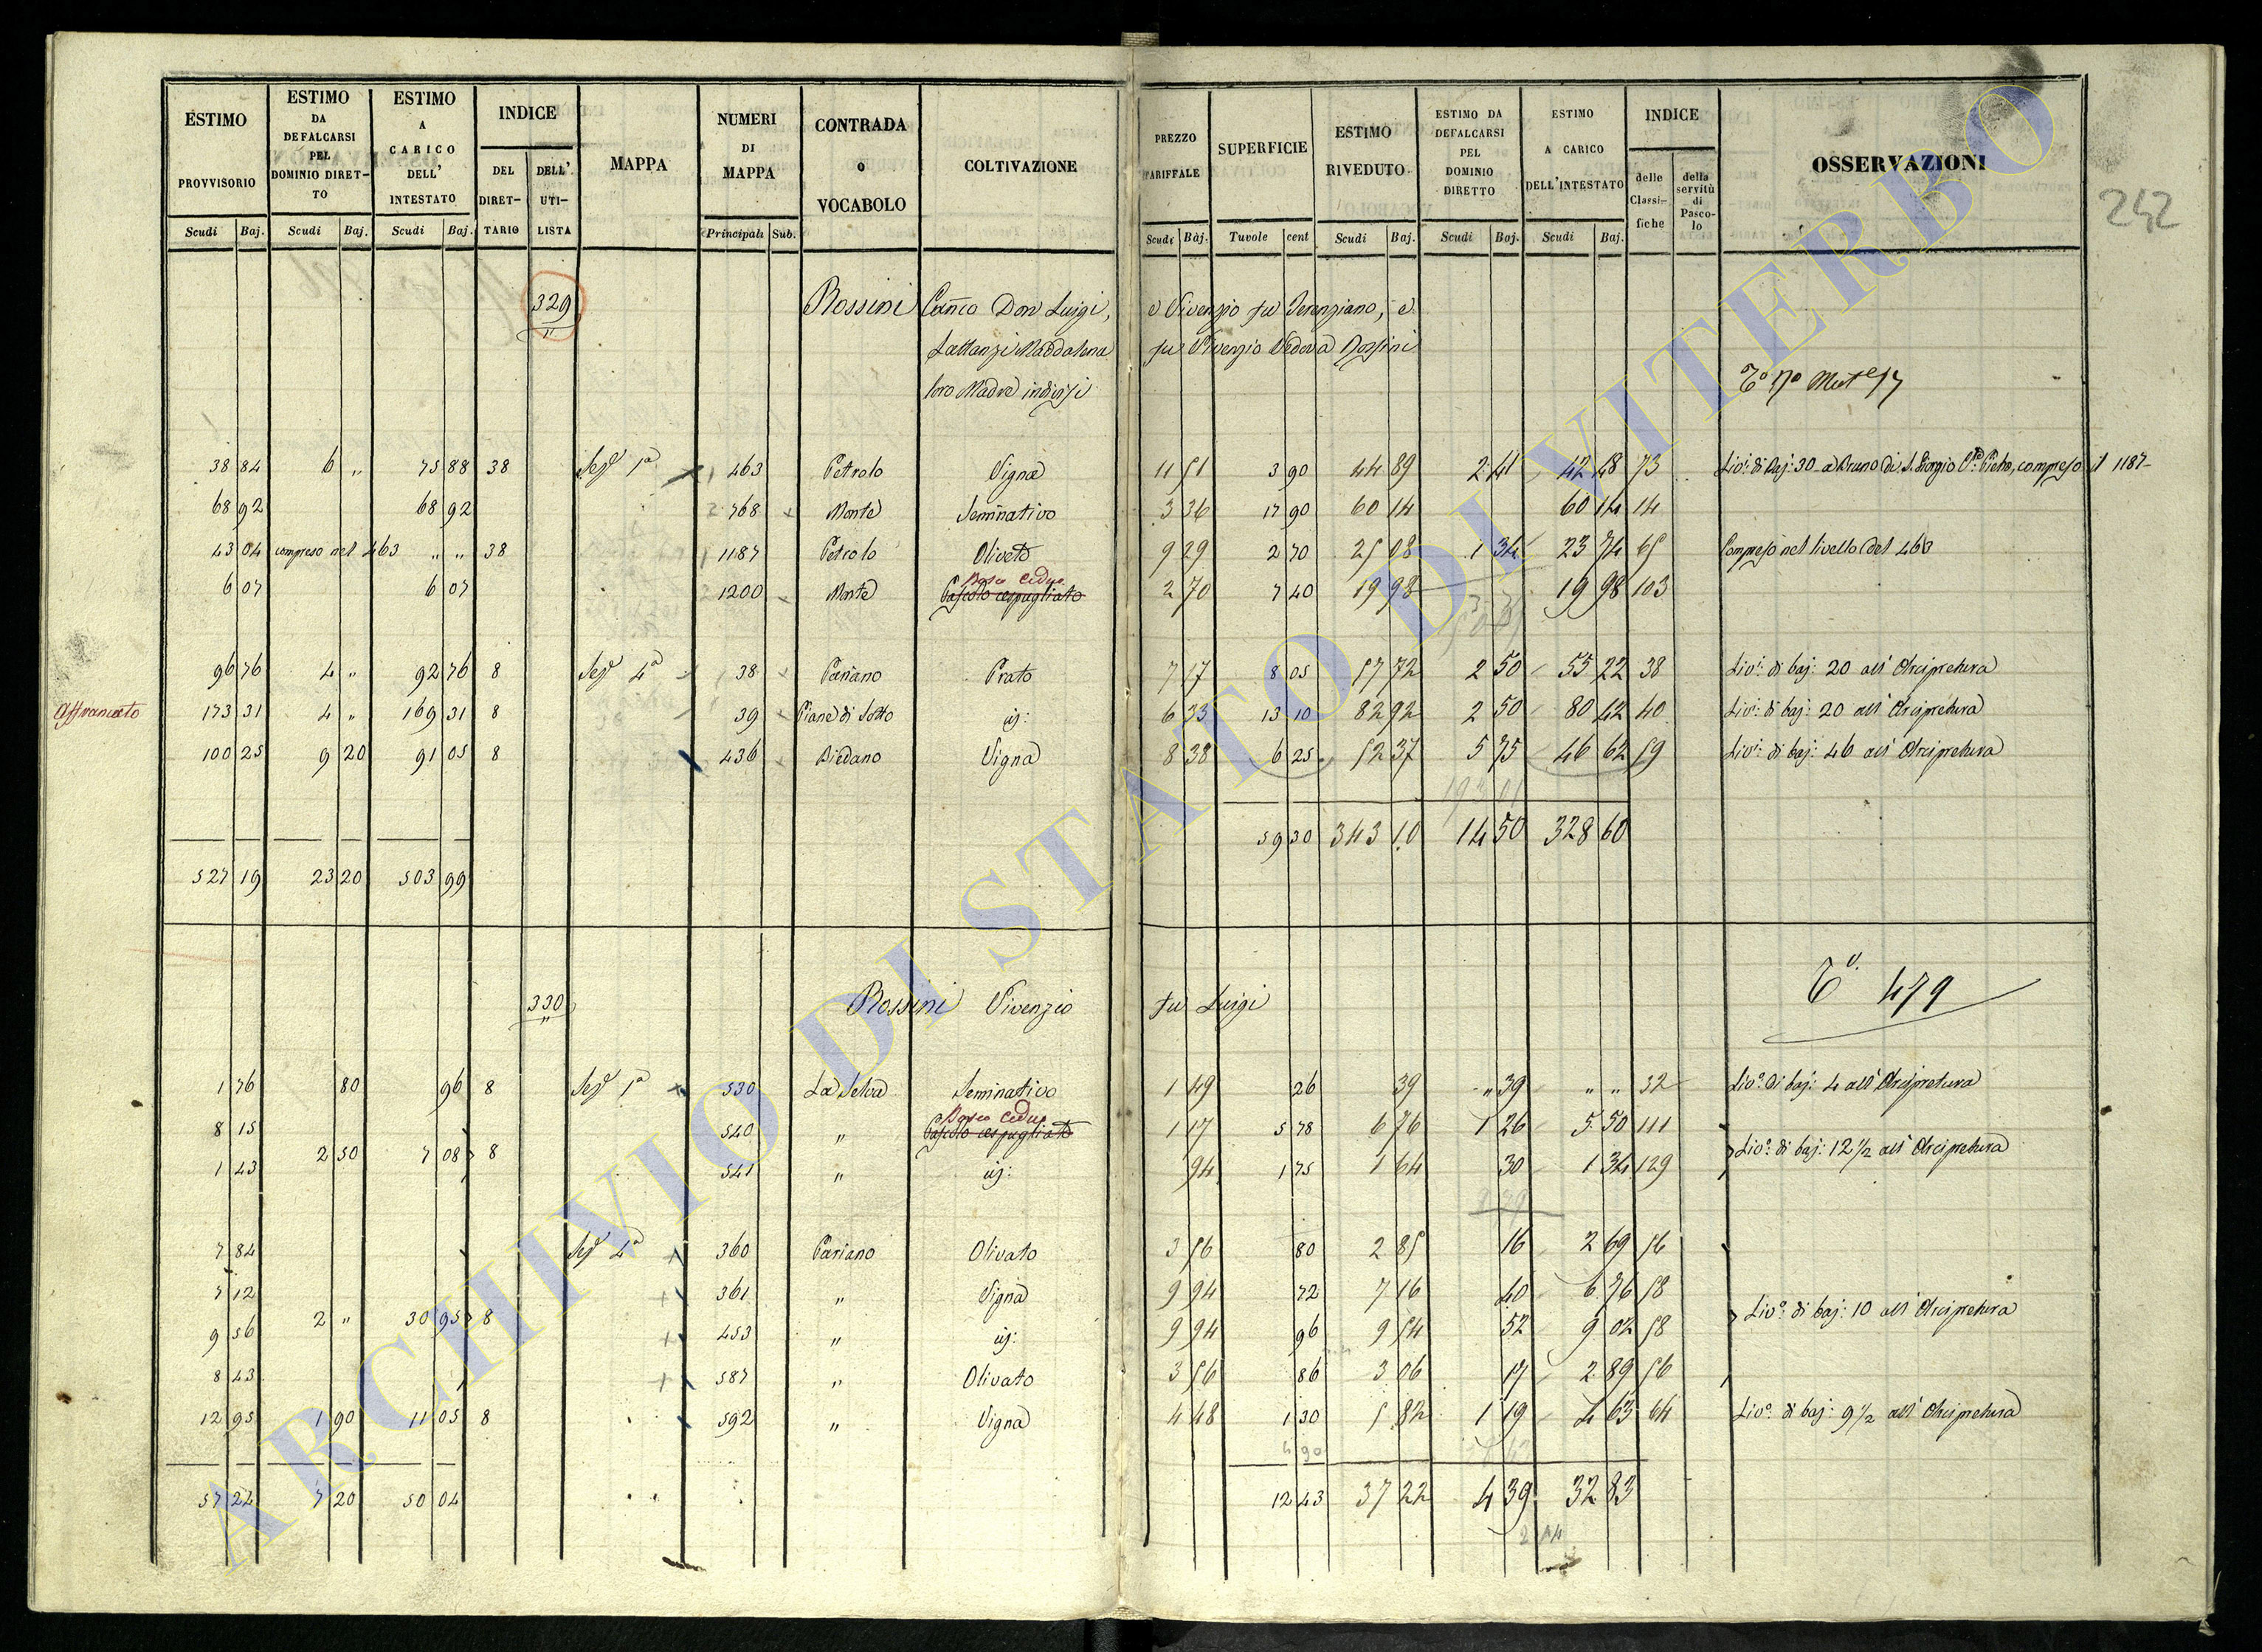 ESTIMO PROVVISORIO Scudi Baj.
ESTIMO DA DEFALCARSI PEL DOMINIO DIRET-TO Scudi Baj.
ESTIMO A CARICO DELL' INTESTATO Scudi Baj.
INDICE DEL DIRET-TARIO DELL' UTI-LISTA
MAPPA
NUMERI DI MAPPA Principali Sub.
CONTRADA o VOCABOLO
COLTIVAZIONE
PREZZO TARIFFALE Scudi Baj.
SUPERFICIE Tavole cent
ESTIMO RIVEDUTO Scudi Baj.
ESTIMO DA DEFALCARSI PEL DOMINIO DIRETTO Scudi Baj.
ESTIMO A CARICO DELL'INTESTATO Scudi Baj.
INDICE delle Classi-fiche della servitù di Pasco-lo
OSSERVAZIONI
242
329 Rossini Can̄co Don Luigi, e Vivenzio fu Terenziano, e
Lattanzi Maddalena fu Vivenzio Vedova Rossini
loro Madre indivisi
38 84 6 " 75 88 38 Sez.e 1a 463 Petrolo Vigna 11 51 3 90 44 89 2 41 42 48 73 Liv.o di Baj: 30 a Bruno di S. Giorgio Pietro, compreso il 1187
68 92 68 92 768 Monte Seminativo 3 36 17 90 60 14 60 14 14
43 04 compreso nel 463 " " 38 1187 Petrolo Olivato 9 29 2 70 25 08 1 34 23 74 65 Compreso nel livello del 463
Bosco Ceduo
6 07 6 07 1200 Monte Pascolo cespugliato 2 70 7 40 19 98 19 98 103
96 76 4 " 92 76 8 Sez.e 4a 38 Pariano Prato 7 17 8 05 57 72 2 50 55 22 38 Liv.o di baj: 20 all' Arcipretura
Affrancato 173 31 4 " 169 31 8 39 Piane di Sotto id: 6 33 13 10 82 92 2 50 80 42 40 Liv.o di baj: 20 all' Arcipretura
100 25 9 20 91 05 8 436 Biedano Vigna 8 38 6 25 52 37 5 75 46 62 59 Liv.o di baj: 46 all' Arcipretura
59 30 343 10 14 50 328 60
527 19 23 20 503 99
T.o 479
330 Rossini Vivenzio fu Luigi
1 76 80 96 8 Sez.e 1a 530 La Selva Seminativo 1 49 26 39 " 39 " " 32 Liv.o di baj: 4 all' Arcipretura
Bosco Ceduo
8 15 540 " Pascolo cespugliato 1 17 5 78 6 76 1 26 5 50 111
2 50 7 08 8 Liv.o di baj: 12 1/2 all' Arcipretura
1 43 541 " id: 94 1 75 1 64 30 1 34 129
7 84 Sez.e 4a 360 Pariano Olivato 3 56 80 2 85 16 2 69 56
7 12 361 " Vigna 9 94 72 7 16 40 6 76 58
2 " 30 95 8 Liv.o di baj: 10 all' Arcipretura
9 56 453 " id: 9 94 96 9 54 52 9 02 58
8 43 587 " Olivato 3 56 86 3 06 17 2 89 56
12 95 1 90 11 05 8 592 " Vigna 4 48 1 30 5 82 1 19 4 63 64 Liv.o di baj: 9 1/2 all' Arcipretura
57 24 7 20 50 04 12 43 37 22 4 39 32 83
ARCHIVIO DI STATO DI VITERBO